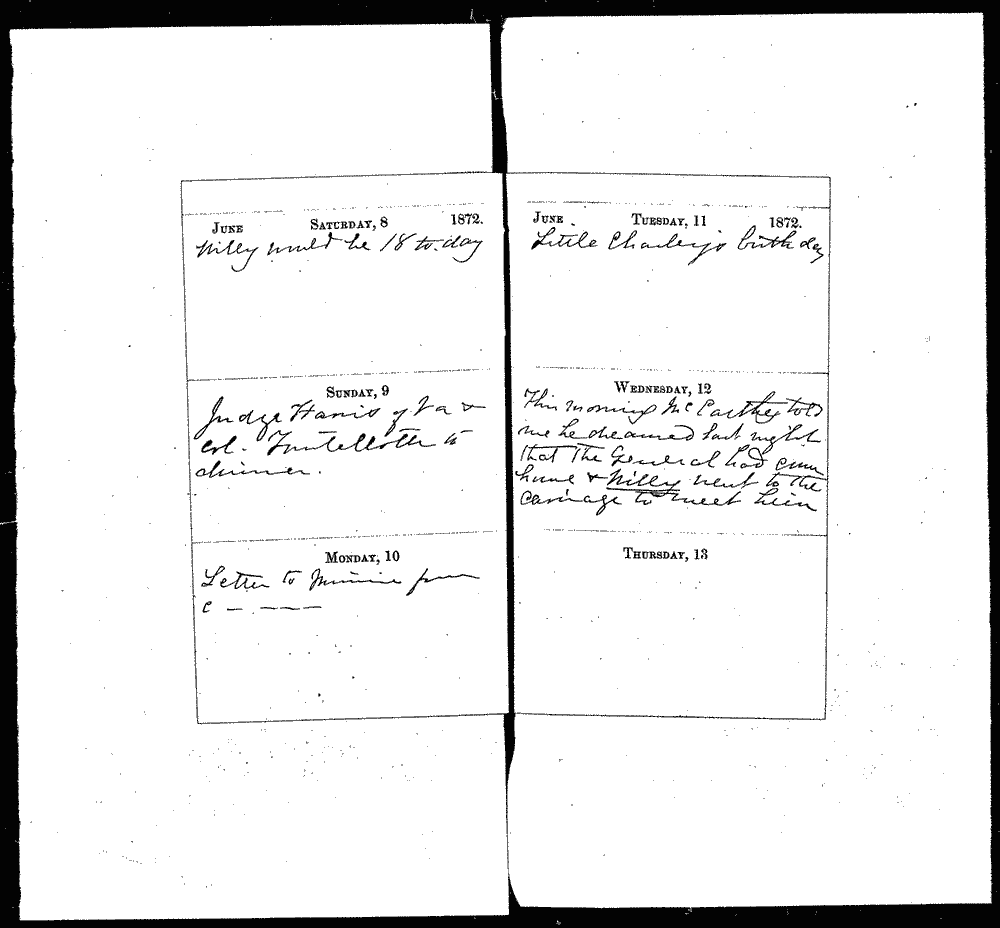 JUNE SATURDAY, 8 1872.
Willy would be 18 to-day
SUNDAY, 9
Judge Harris of Va &
Col. Tourtellotte to
dinner.
MONDAY, 10
Letter to Minnie from
C — — — —
JUNE TUESDAY, 11 1872.
Little Charley's birth day
WEDNESDAY, 12
This morning McCarthy told
me he dreamed last night
that the General had come
home & Willy went to the
carriage to meet him
THURSDAY, 13